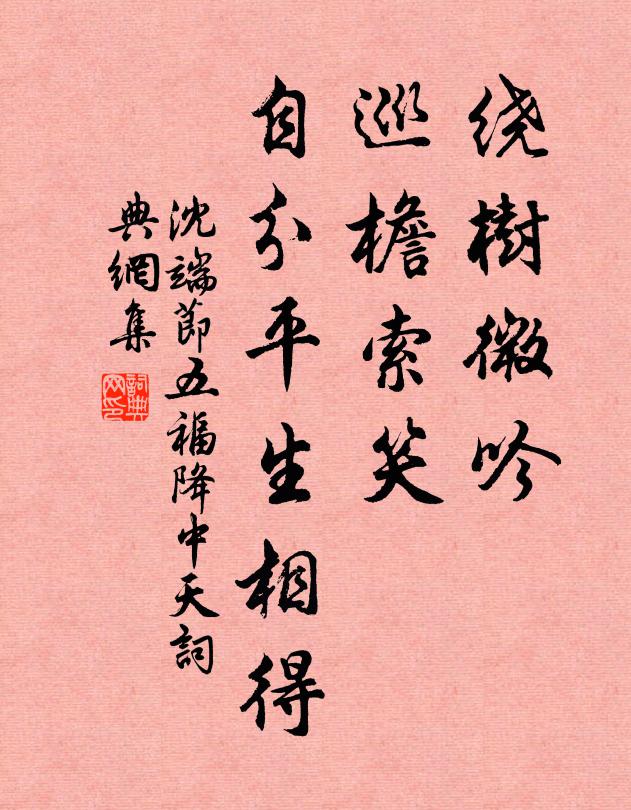 绕樹微吟
巡檐索笑
自分平生相得
沈端節五福降中天詞
典網集
詞典
网印